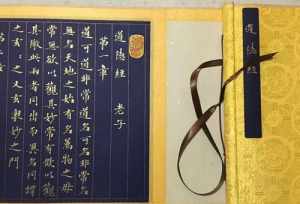 道德經
道德經 老子
第一章
道可道非常道名可名非常名
無名天地之始有名萬物之母
常無欲以觀其妙常有欲以觀
其徼此兩者同出而異名同謂
之玄:之又玄衆妙之門